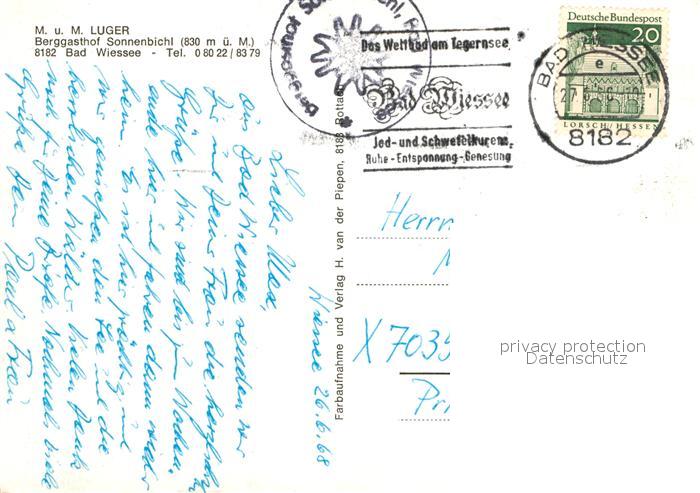 M. u. M. LUGER
Berggasthof Sonnenbichl (830 m ü. M.)
8182 Bad Wiessee - Tel. 0 80 22 / 83 79
Das Weltbad am Tegernsee
Bad Wiessee
Jod- und Schwefelkuren
Ruhe - Entspannung - Genesung
Deutsche Bundespost
20
LORSCH/HESSEN
BAD WIESSEE
e
8182
Farbaufnahme und Verlag H. van der Piepen, 8183 Rottach
Wiessee 26.6.68
Lieber Max,
aus Bad Wiessee senden wir
Dir und Deiner Frau die herzlichsten
Grüße. Wir sind bis
und fahren dann wieder
heim. Es ist hier prächtig, und
wir genießen den See und die
herrlichen Wälder. Vielen Dank
noch für Deine Grüße. Nochmals viele
Grüße Dein Paul u Frau
Herrn
X 7035
privacy protection
Datenschutz